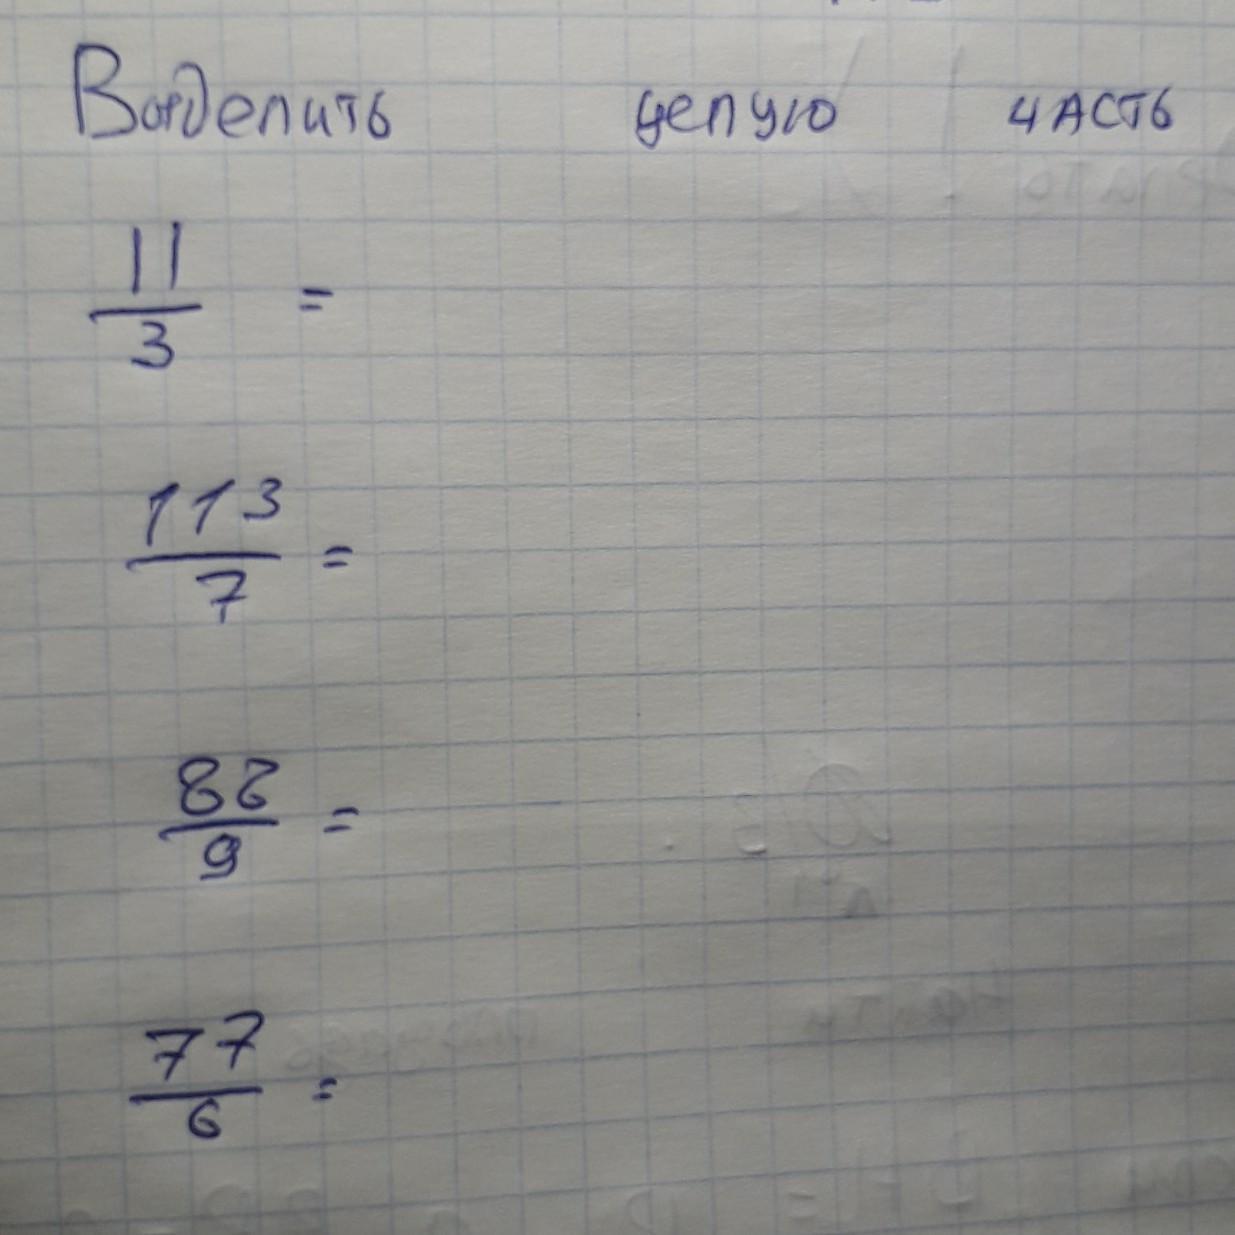 Выделить целую часть
11/3 =
113/7 =
82/9 =
77/6 =